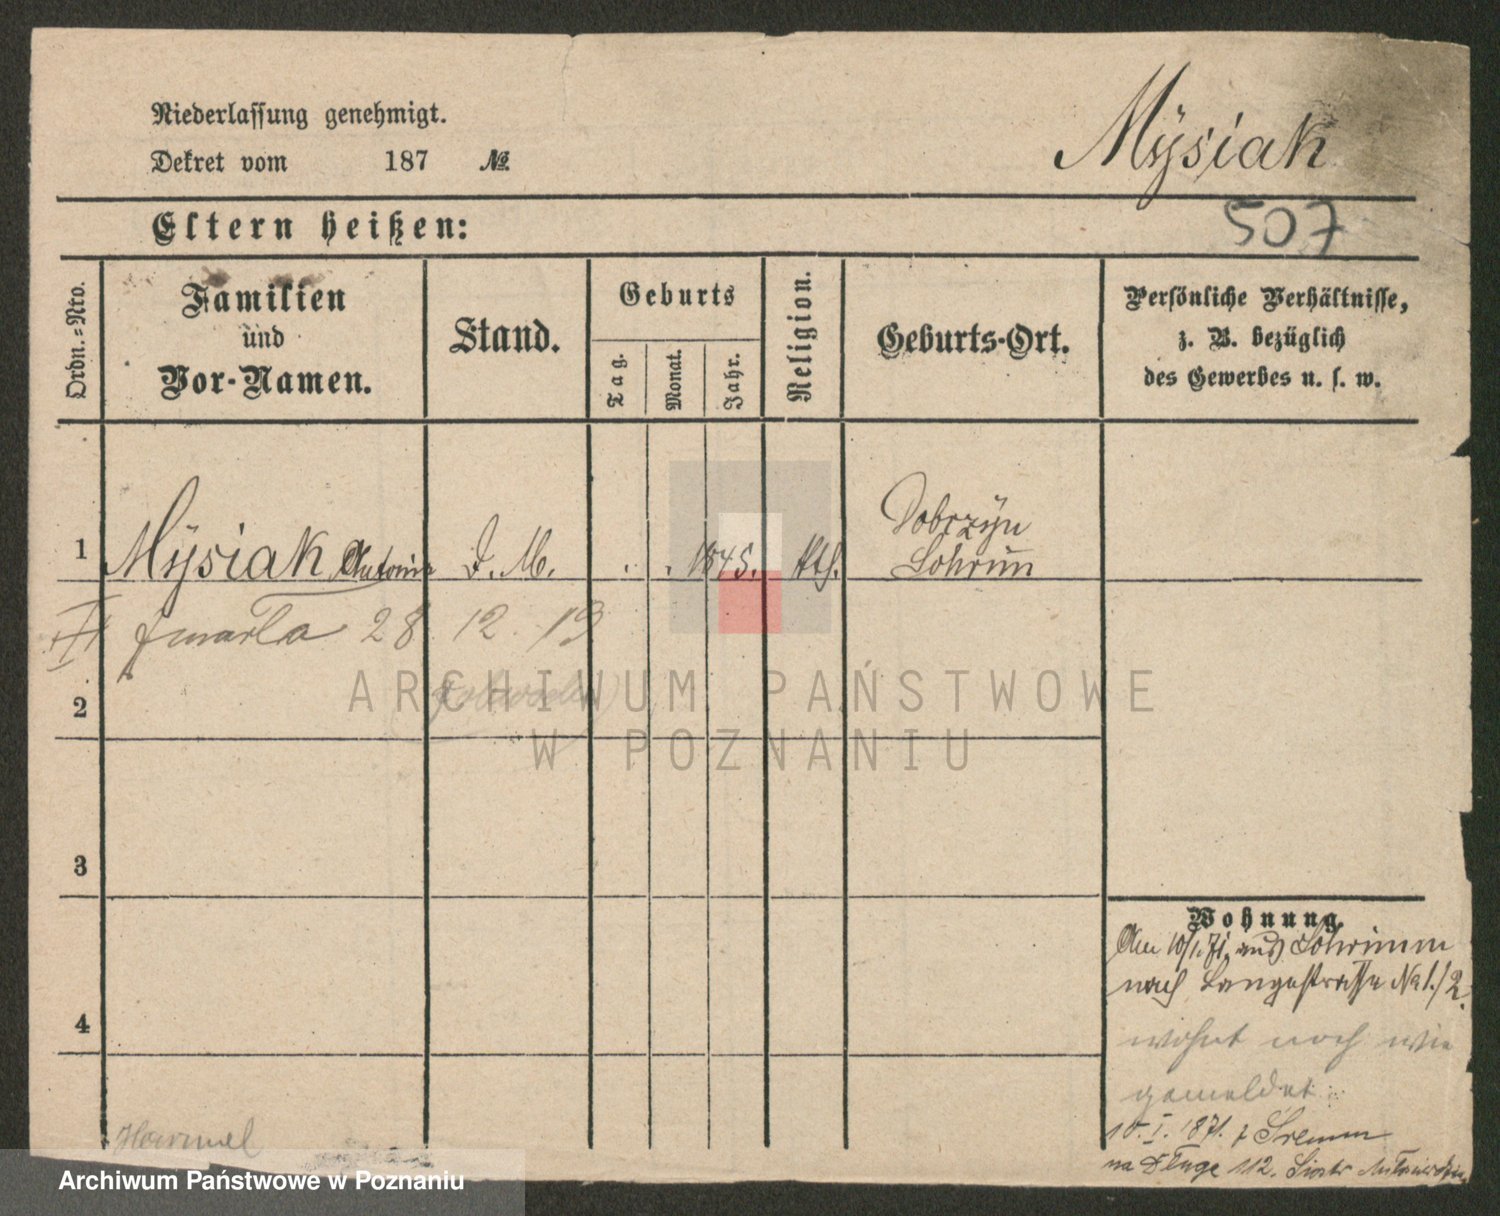 Niederlassung genehmigt.
Dekret vom 187 №
Mÿsiak
Eltern heißen:
507
Ordn.-Nro.
Familien
und
Vor-Namen.
Stand.
Geburts
Tag.
Monat.
Jahr.
Religion.
Geburts-Ort.
Persönliche Verhältnisse,
z. B. bezüglich
des Gewerbes u. s. w.
1 Mÿsiak Antonie D. M. 1845. kth. Dobrzÿn
Schrimm
zmarła 28 12 19
2
3
4
Wohnung.
Am 10/1.71. aus Schrimm
nach Langestrasse No 1./2.
wohnt noch wie
gemeldet
10. I. 1871. z Śremm
na Długe 112. Siostr
ARCHIWUM PAŃSTWOWE
W POZNANIU
Archiwum Państwowe w Poznaniu